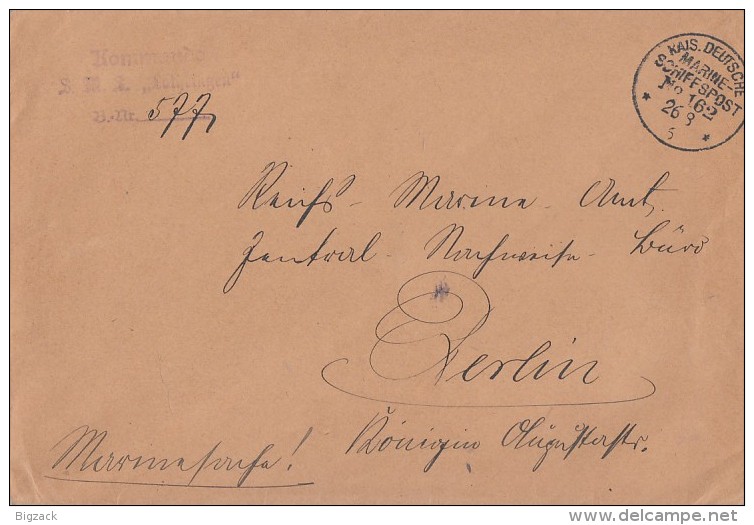 Kommando
S. M. S. „Lothringen"
B.-Nr. 577
KAIS. DEUTSCHE
MARINE-
SCHIFFSPOST
No 162
26 8
* *
Reichs - Marine - Amt,
Zentral - Nachweise - Büro
Berlin
Königin Augustastr.
Marinesache!
Bigzack
delcampe.net